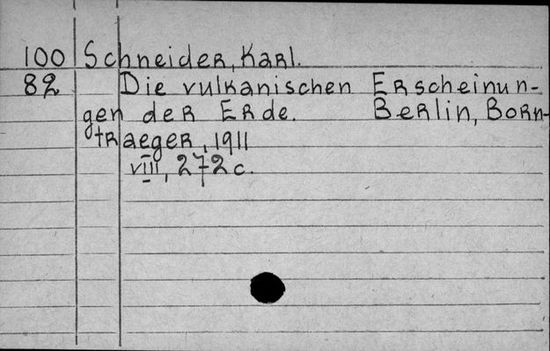 100 Schneider, Karl.
82 Die vulkanischen Erscheinun-
gen der Erde. Berlin, Born-
traeger, 1911
VIII, 272 c.